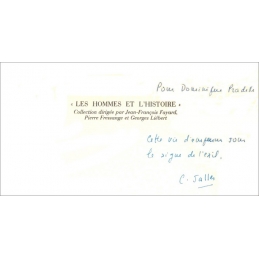 Pour Dominique Pradels
« LES HOMMES ET L'HISTOIRE »
Collection dirigée par Jean-François Fayard,
Pierre Fressange et Georges Liébert
Cette vie d' sous
le signe de l'exil.
C. Salles